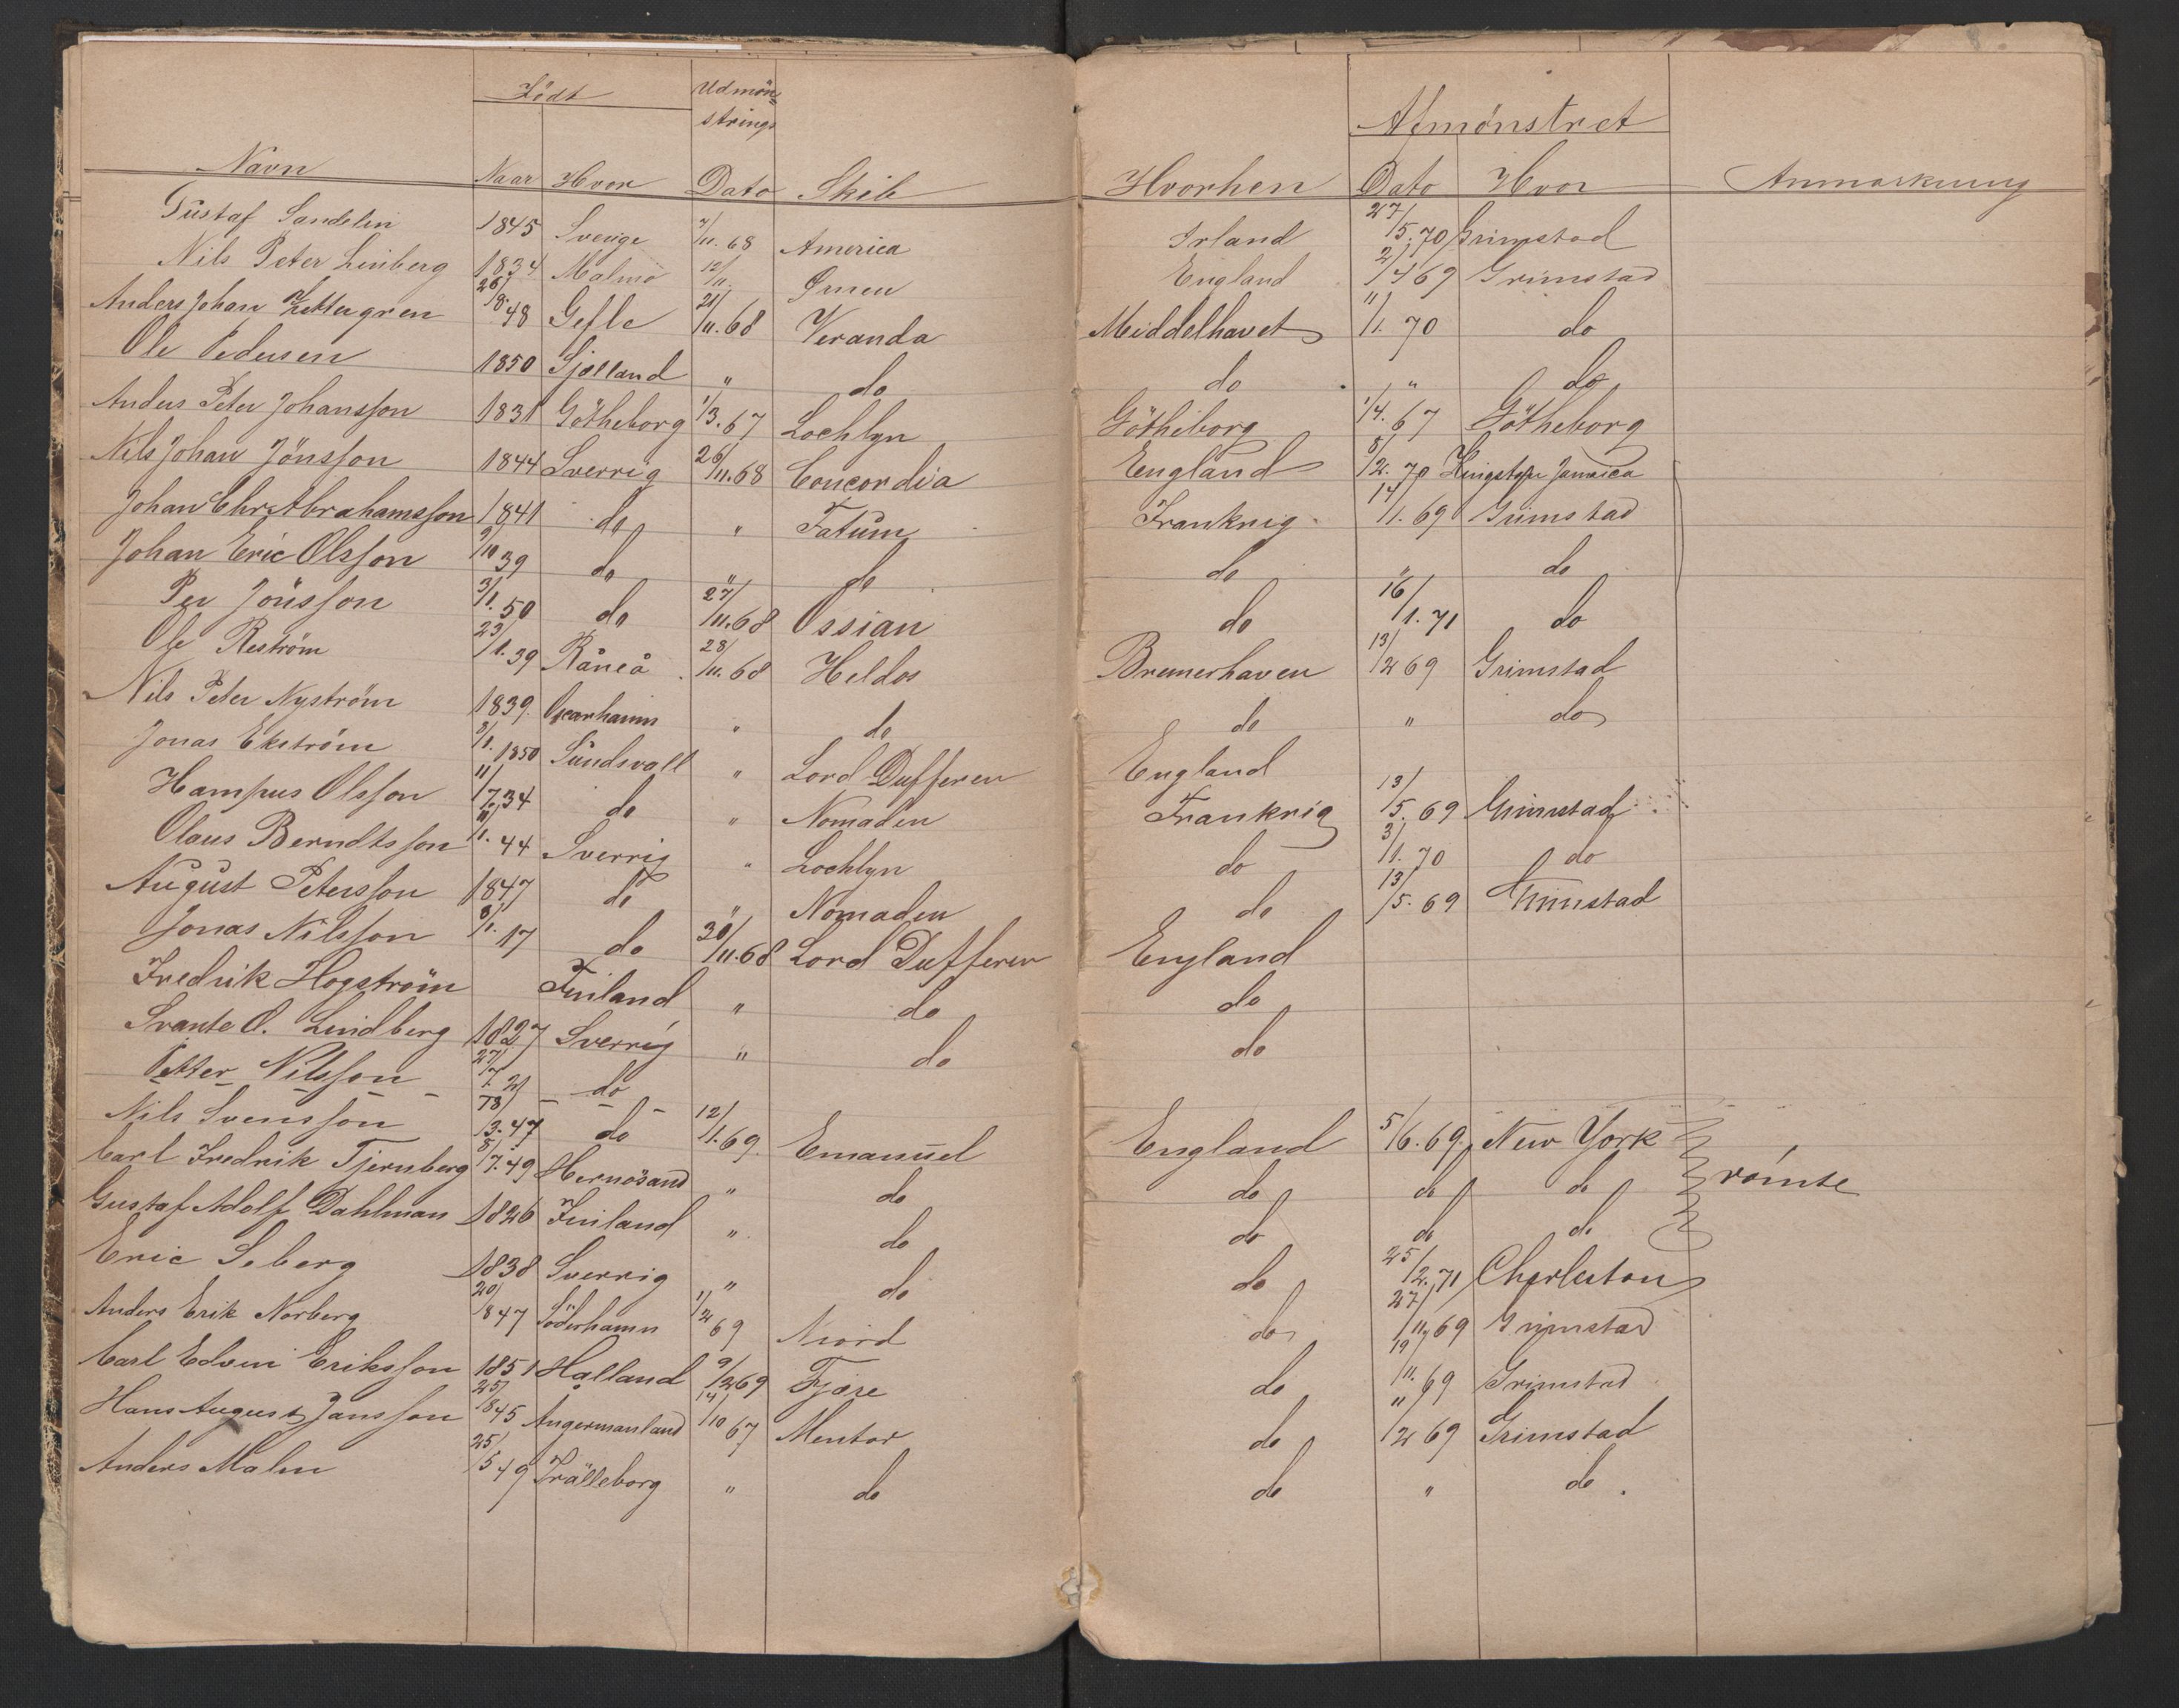 Födt Udmön- Afmönstret
strings
Navn Naar Hvor Dato Skib Hvorhen Dato Hvor Anmærkning
Gustaf Sandelin 1845 Sverige 11.68 America Irland 27/5.70 Grimstad
Nils Peter Linberg 1834 Malmö 12/11. Ørnen England 2/4 69 Grimstad
Anders Johan Zettergren 26/8.48 Gefle 21/11.68 Veranda Middelhavet 11/1. 70 do
Ole Pedersen 1850 Sjælland " do do " do
Anders Peter Johansson 1831 Götheborg 1/3.67 Lochlyn Götheborg 1/4.67 Götheborg
Nils Johan Jönsson 1844 Sverrig 26/11.68 Concordia England 8/2. 70 Kingston Jamaica
Johan Chr. Abrahamsson 1841 do " Fatum Frankrig 14/1. 69 Grimstad
Johan Eric Olsson 9/10 39 do " do do " do
Per Jönsson 3/1. 50 do 27/11.68 Ossian do 16/1.71 do
Ole Reström 23/1.39 Råneå 28/11.68 Heldos Bremerhaven 13/2 69 Grimstad
Nils Peter Nyström 1839 Oscarhamn " do do " do
Jonas Ekström 8/1. 1850 Sundsvall " Lord Dufferen England
Hampus Olsson 11/7.34 do " Nomaden Frankrig 13/5. 69 Grimstad
Olaus Berndtsson 11/1. 44 Sverrig " Lochlyn do 3/1. 70 do
August Petersson 1847 do " Nomaden do 13/5. 69 Grimstad
Jonas Nilsson 8/1. 17 do 30/11.68 Lord Dufferen England
Fredrik Hogström Finland " do do
Svante O. Lindberg 1827 Sverrig " do do
Petter Nilsson 27/7.21 do
Nils Svensson 18/3.47 do 12/1.69 Emanuel England 5/6.69. New York
Carl Fredrik Tjernberg 8/7.49 Hernösand " do do do do römte
Gustaf Adolf Dahlman 1826 Finland " do do do do
Eric Seberg 1838 Sverrig " do do 25/2.71 Charleston
Anders Erik Norberg 20/847 Söderhamn 1/2 69 Niord do 27/11 69 Grimstad
Carl Edvin Eriksson 1851 Halland 9/2 69 Fjære do 19/11. 69 Grimstad
Hans August Jansson 25/845 Ångermanland 14/10 67 Mentor do 11/2 69 Grimstad
Anders Malm 25/5 49 Trälleborg " do do " do